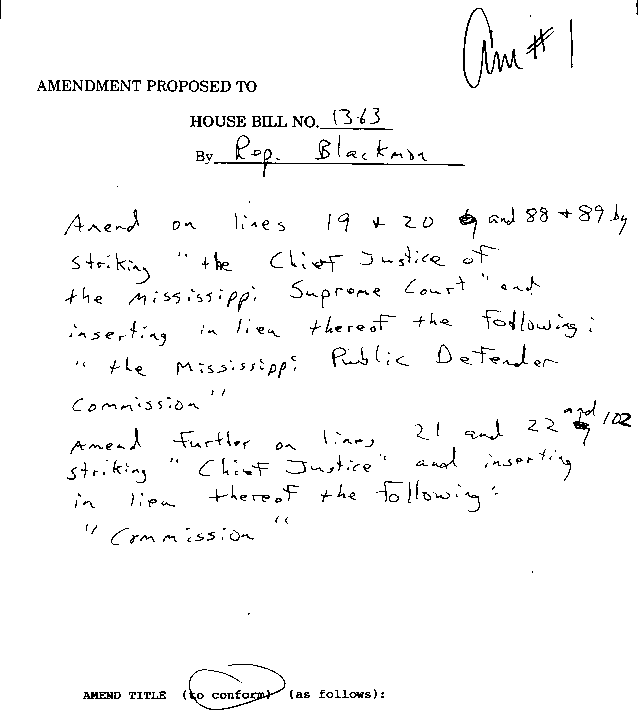 Am # 1
AMENDMENT PROPOSED TO
HOUSE BILL NO. 1363
By Rep. Blackmon
Amend on lines 19 + 20 and 88 + 89 by
striking "the Chief Justice of
the Mississippi Supreme Court" and
inserting in lieu thereof the following:
"the Mississippi Public Defender
Commission"
Amend further on lines 21 and 22 and 102
striking "Chief Justice" and inserting
in lieu thereof the following:
"Commission"
AMEND TITLE (to conform) (as follows):